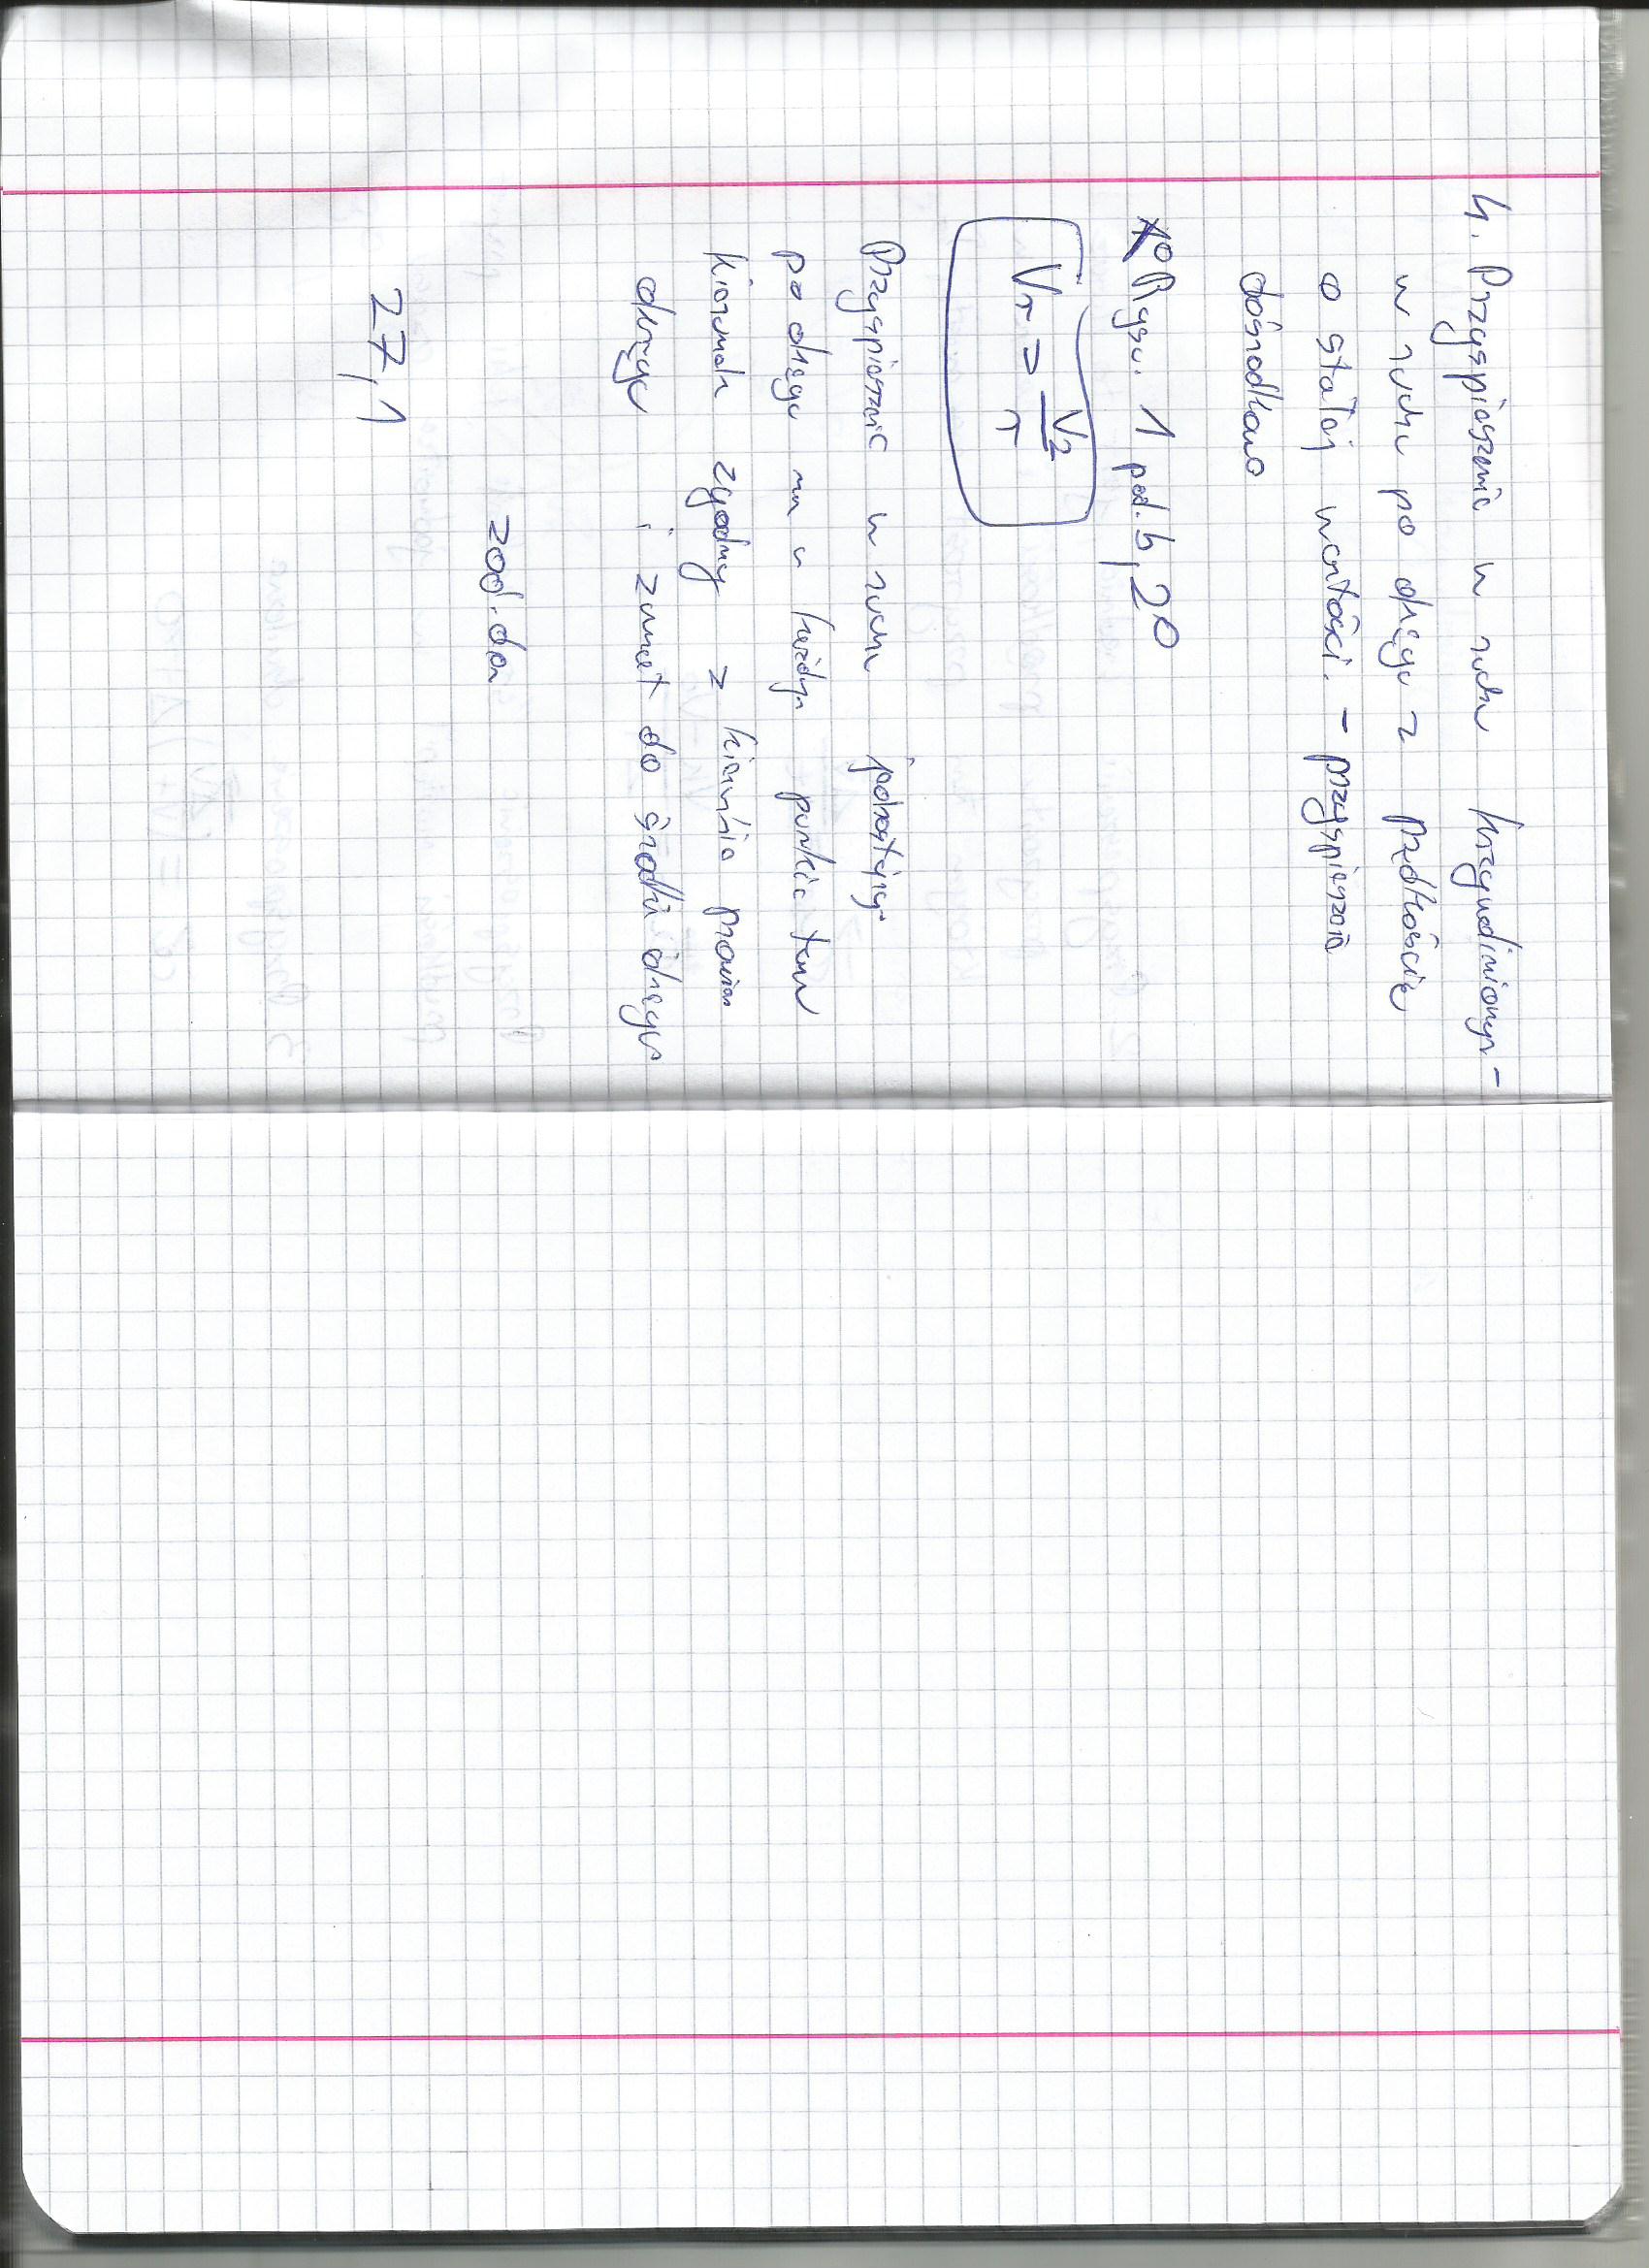 4. Przyspieszenie w ruchu krzywoliniowym -
w ruchu po okręgu z prędkością
o stałej wartości. - przyspieszenie
dośrodkowe
Rysu. 1 pod. b, 20
Vr = V2
r
Przyspieszenie w ruchu jednostajnym
po okręgu ma w każdym punkcie tem
kierunek zgodny z kierunkiem promien
okręgu i zwrot do środka okręgu
zad. do
27,1